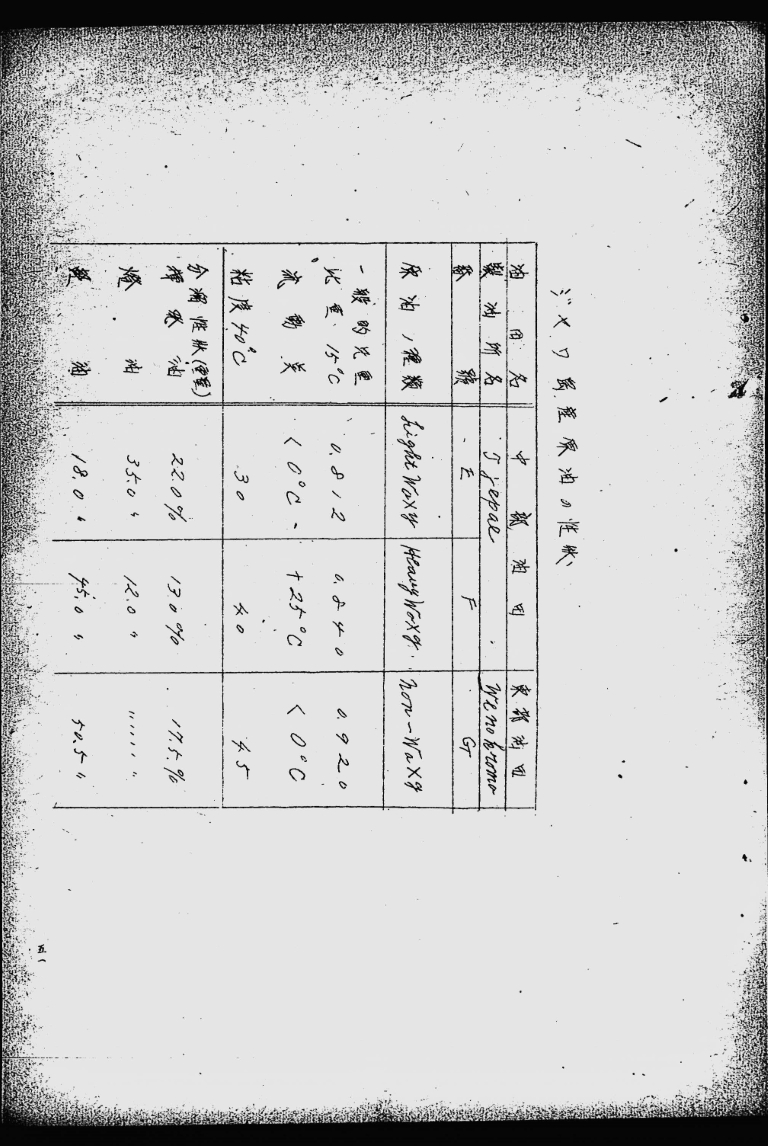 ジャワ島産原油の性狀
油田名 中部油田 東部油田
製油所名 Tjepae Wenokromo
番號 E F G
原油ノ種類 Light Waxy Heavy Waxy. non-Waxy
一般的性質
比重 15°C 0.812 0.840 0.920
流動点 <0°C +25°C <0°C
粘度 40°C 30 40 45
分溜性狀(重量)
揮發油 22.0% 13.0% 17.5%
燈油 35.0〃 12.0〃 〃
軽油 18.0〃 45.0〃 50.5〃
五一